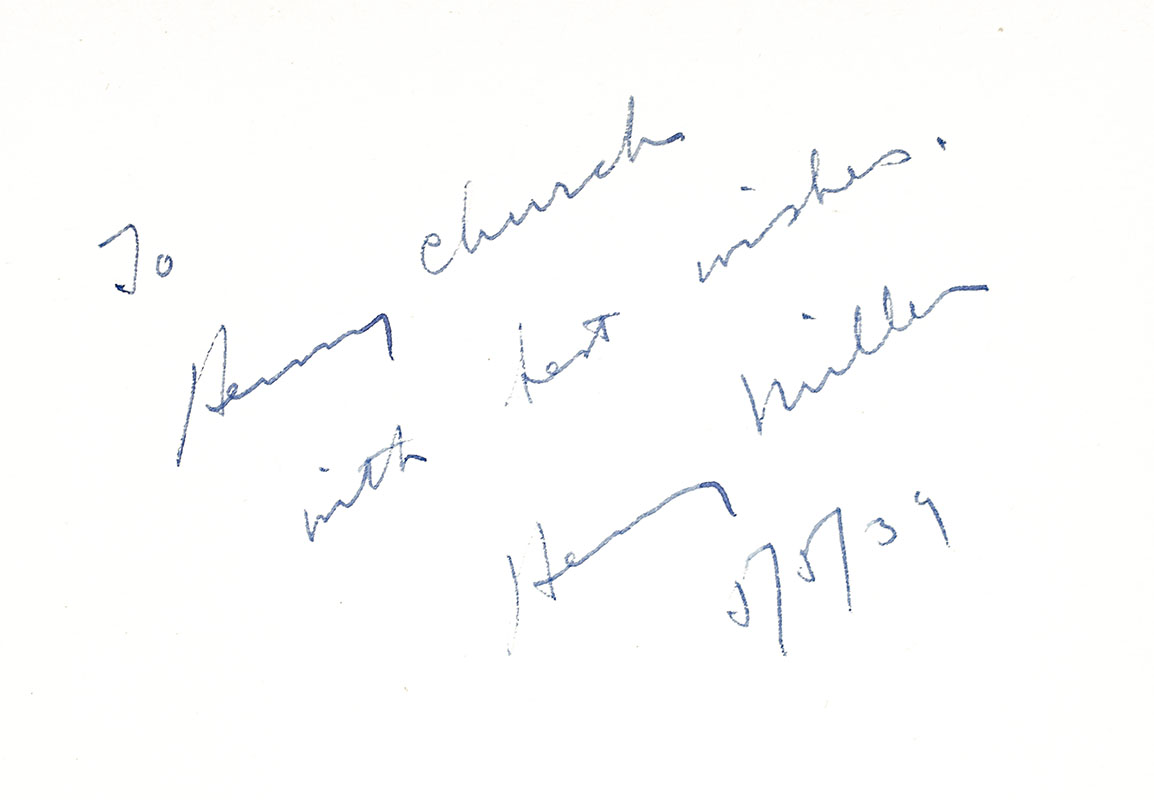 To
Henry Church
with best wishes.
Henry Miller
5/5/39